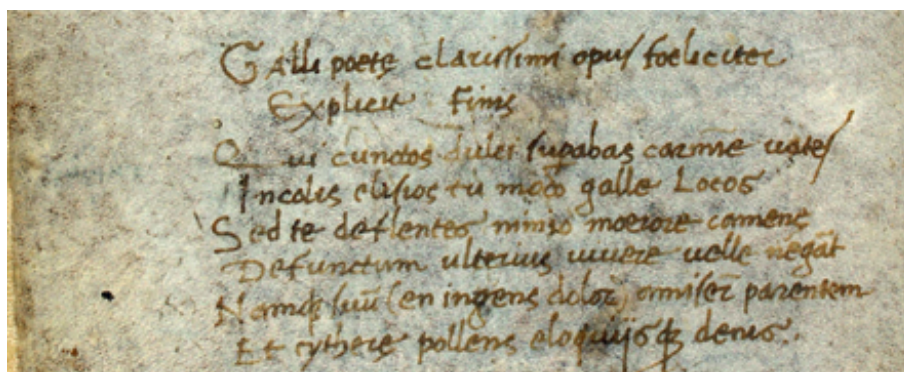 Galli poetę clarissimi opus foeliciter
Explicit Finis
Qui cunctos dulci supabas carmīe uates
Incolis elisios tu mō galle Locos
Sed te deflentes nimio moerore camenę
Defunctum ulterius uiuere uelle negāt
Namqꝫ suū (en ingens dolor) amiser̄ parentem
Et cytherę pollens eloquijsqꝫ decus.